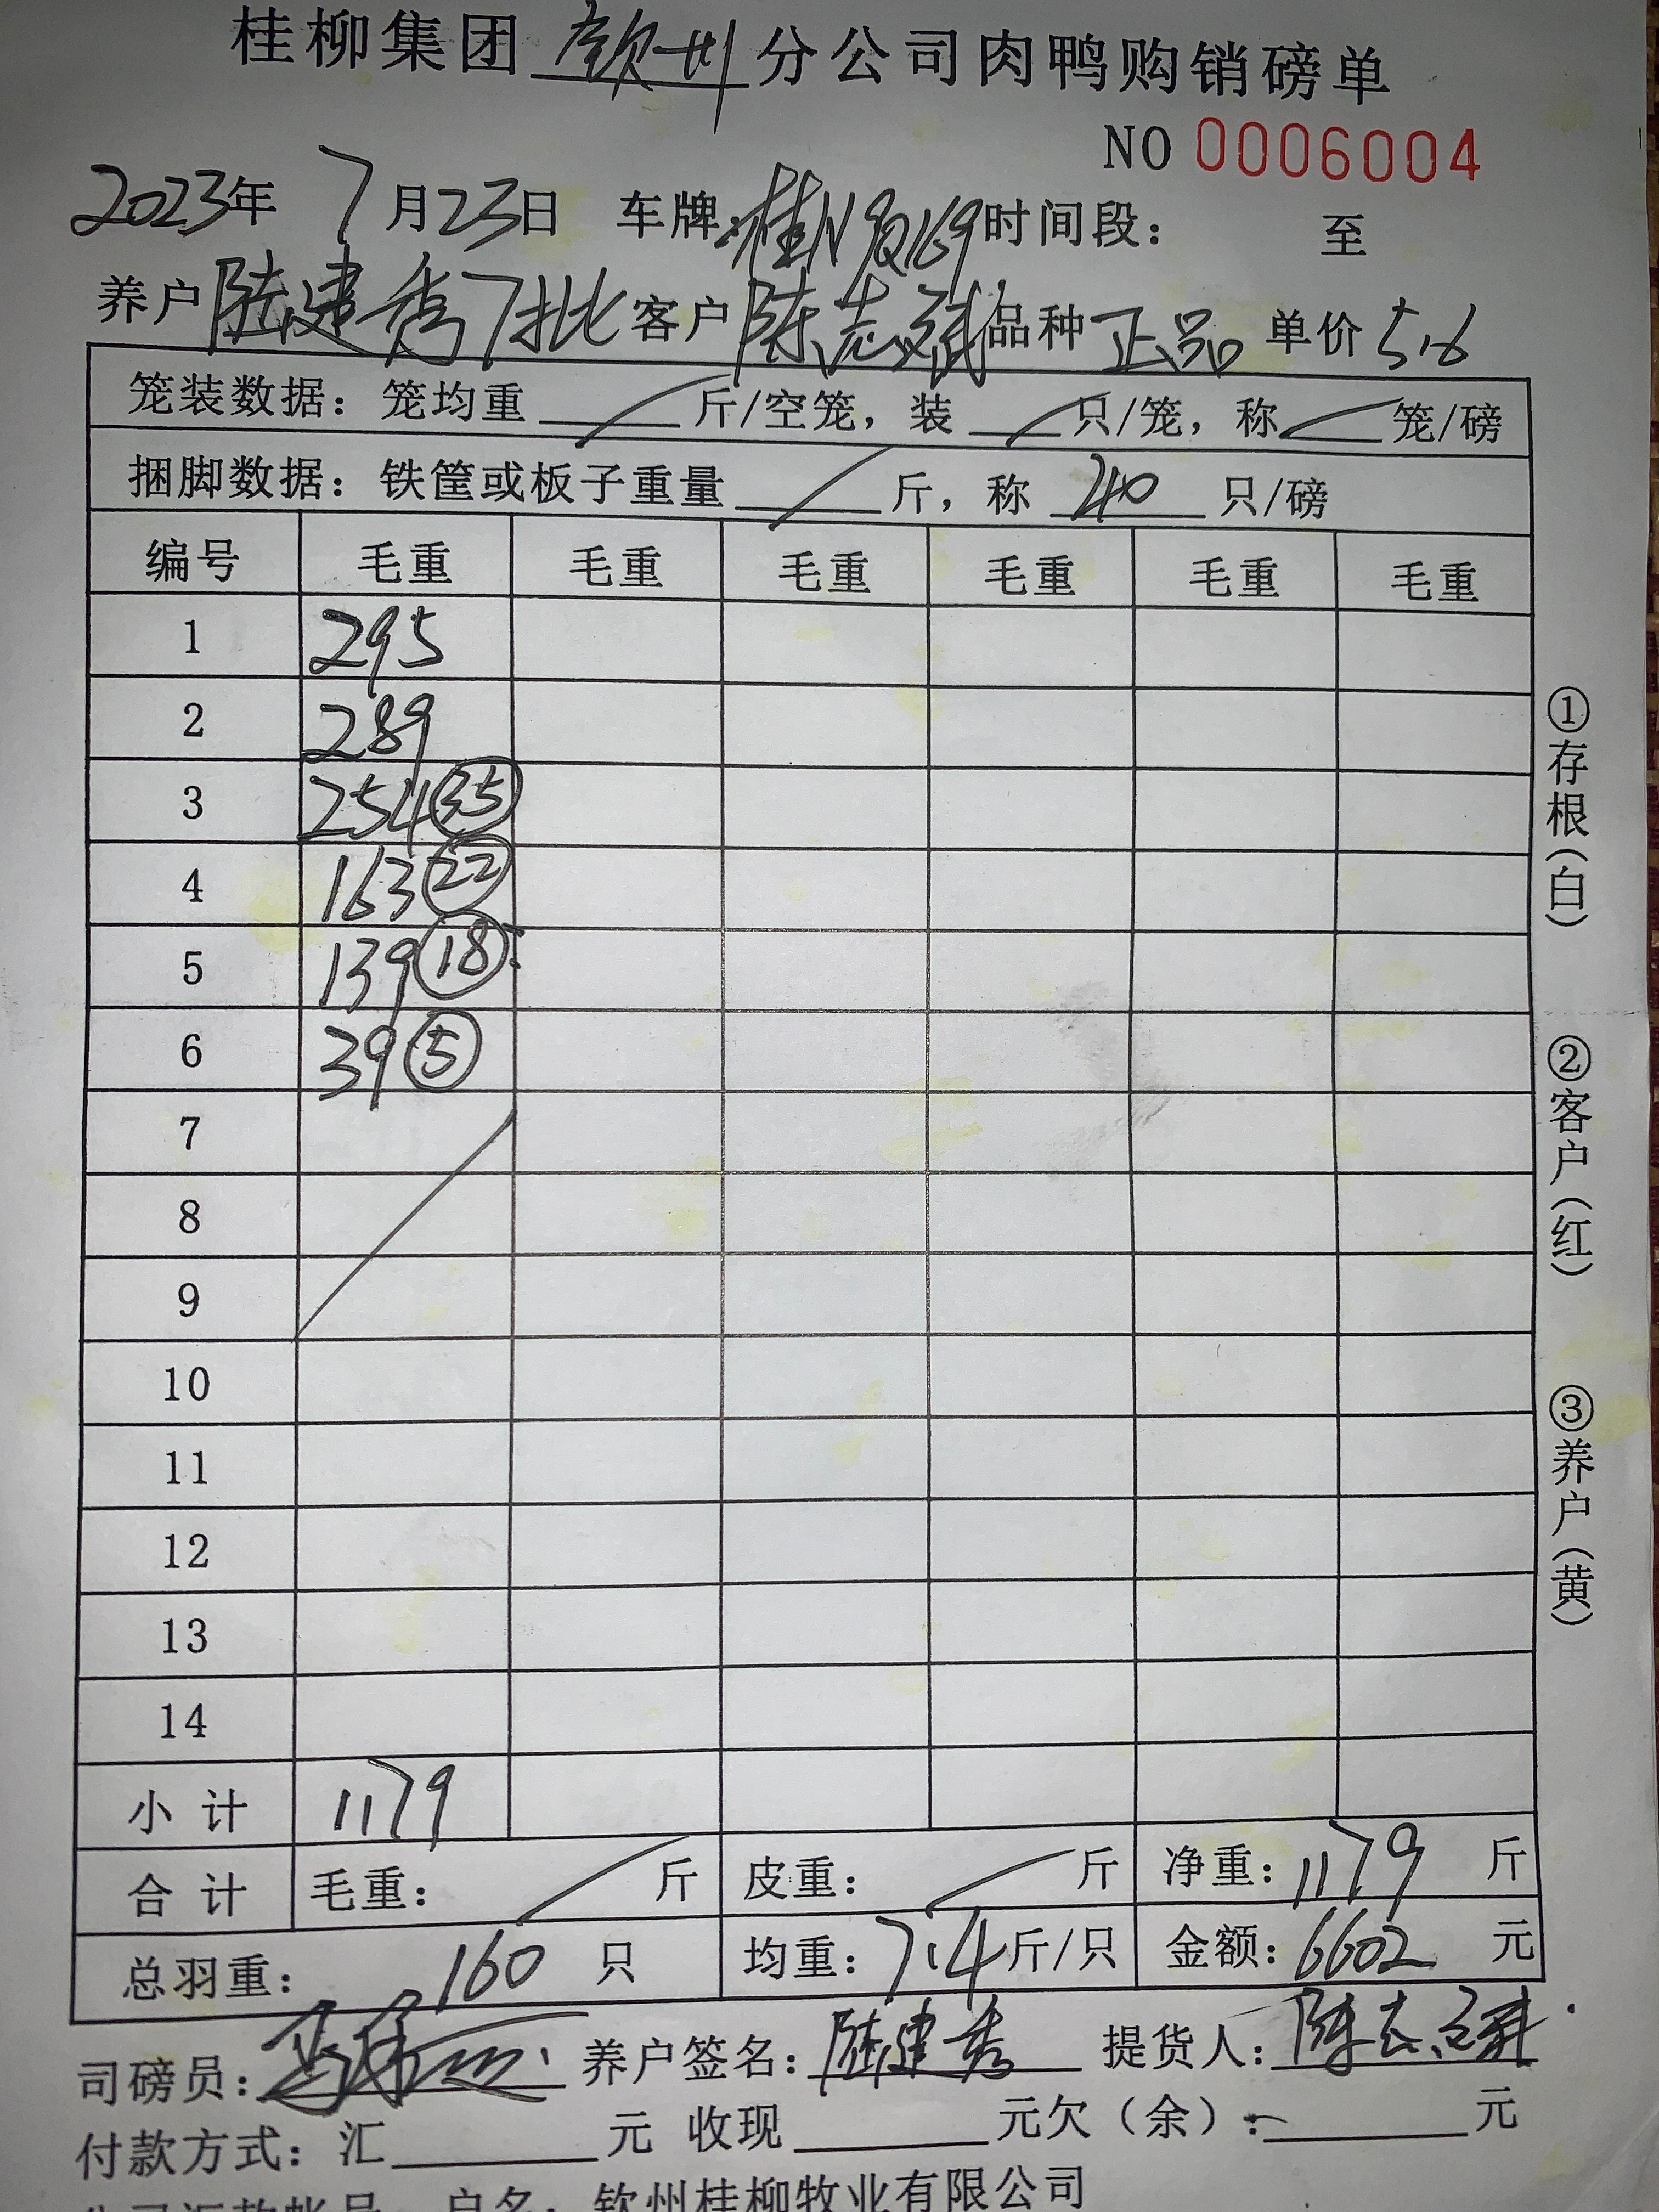 桂柳集团 钦州 分公司肉鸭购销磅单
NO 0006004
2023年 7月23日 车牌:桂N 时间段: 至
养户 陆建秀7批 客户 陈志斌 品种 正品 单价 5.6
笼装数据: 笼均重 斤/空笼, 装 只/笼, 称 笼/磅
捆脚数据: 铁筐或板子重量 斤, 称 40 只/磅
编号 毛重 毛重 毛重 毛重 毛重 毛重
1 295
2 289
3 254 35
4 163 22
5 139 18
6 39 5
7
8
9
10
11
12
13
14
小计 1179
合计 毛重: 斤 皮重: 斤 净重: 1179 斤
总羽重: 160 只 均重: 7.4 斤/只 金额: 6602 元
司磅员: 养户签名: 陆建秀 提货人: 陈志斌
付款方式: 汇 元 收现 元欠(余): 元
户名: 钦州桂柳牧业有限公司
①存根(白)
②客户(红)
③养户(黄)